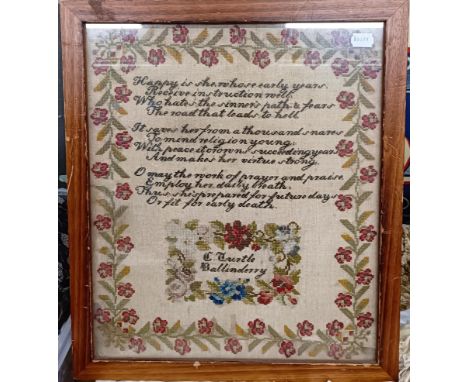 Happy is she whose early years.
Receive instruction well
Who hates the sinner's path & fears
The road that leads to hell
It saves her from a thousand snares
To mind religion young.
With peace it crowns succeeding years
And makes her virtue strong.
O may the work of prayer and praise
Employ her daily breath.
Thus she's prepared for future days
Or fit for early death.
C Turtle
Ballinderry